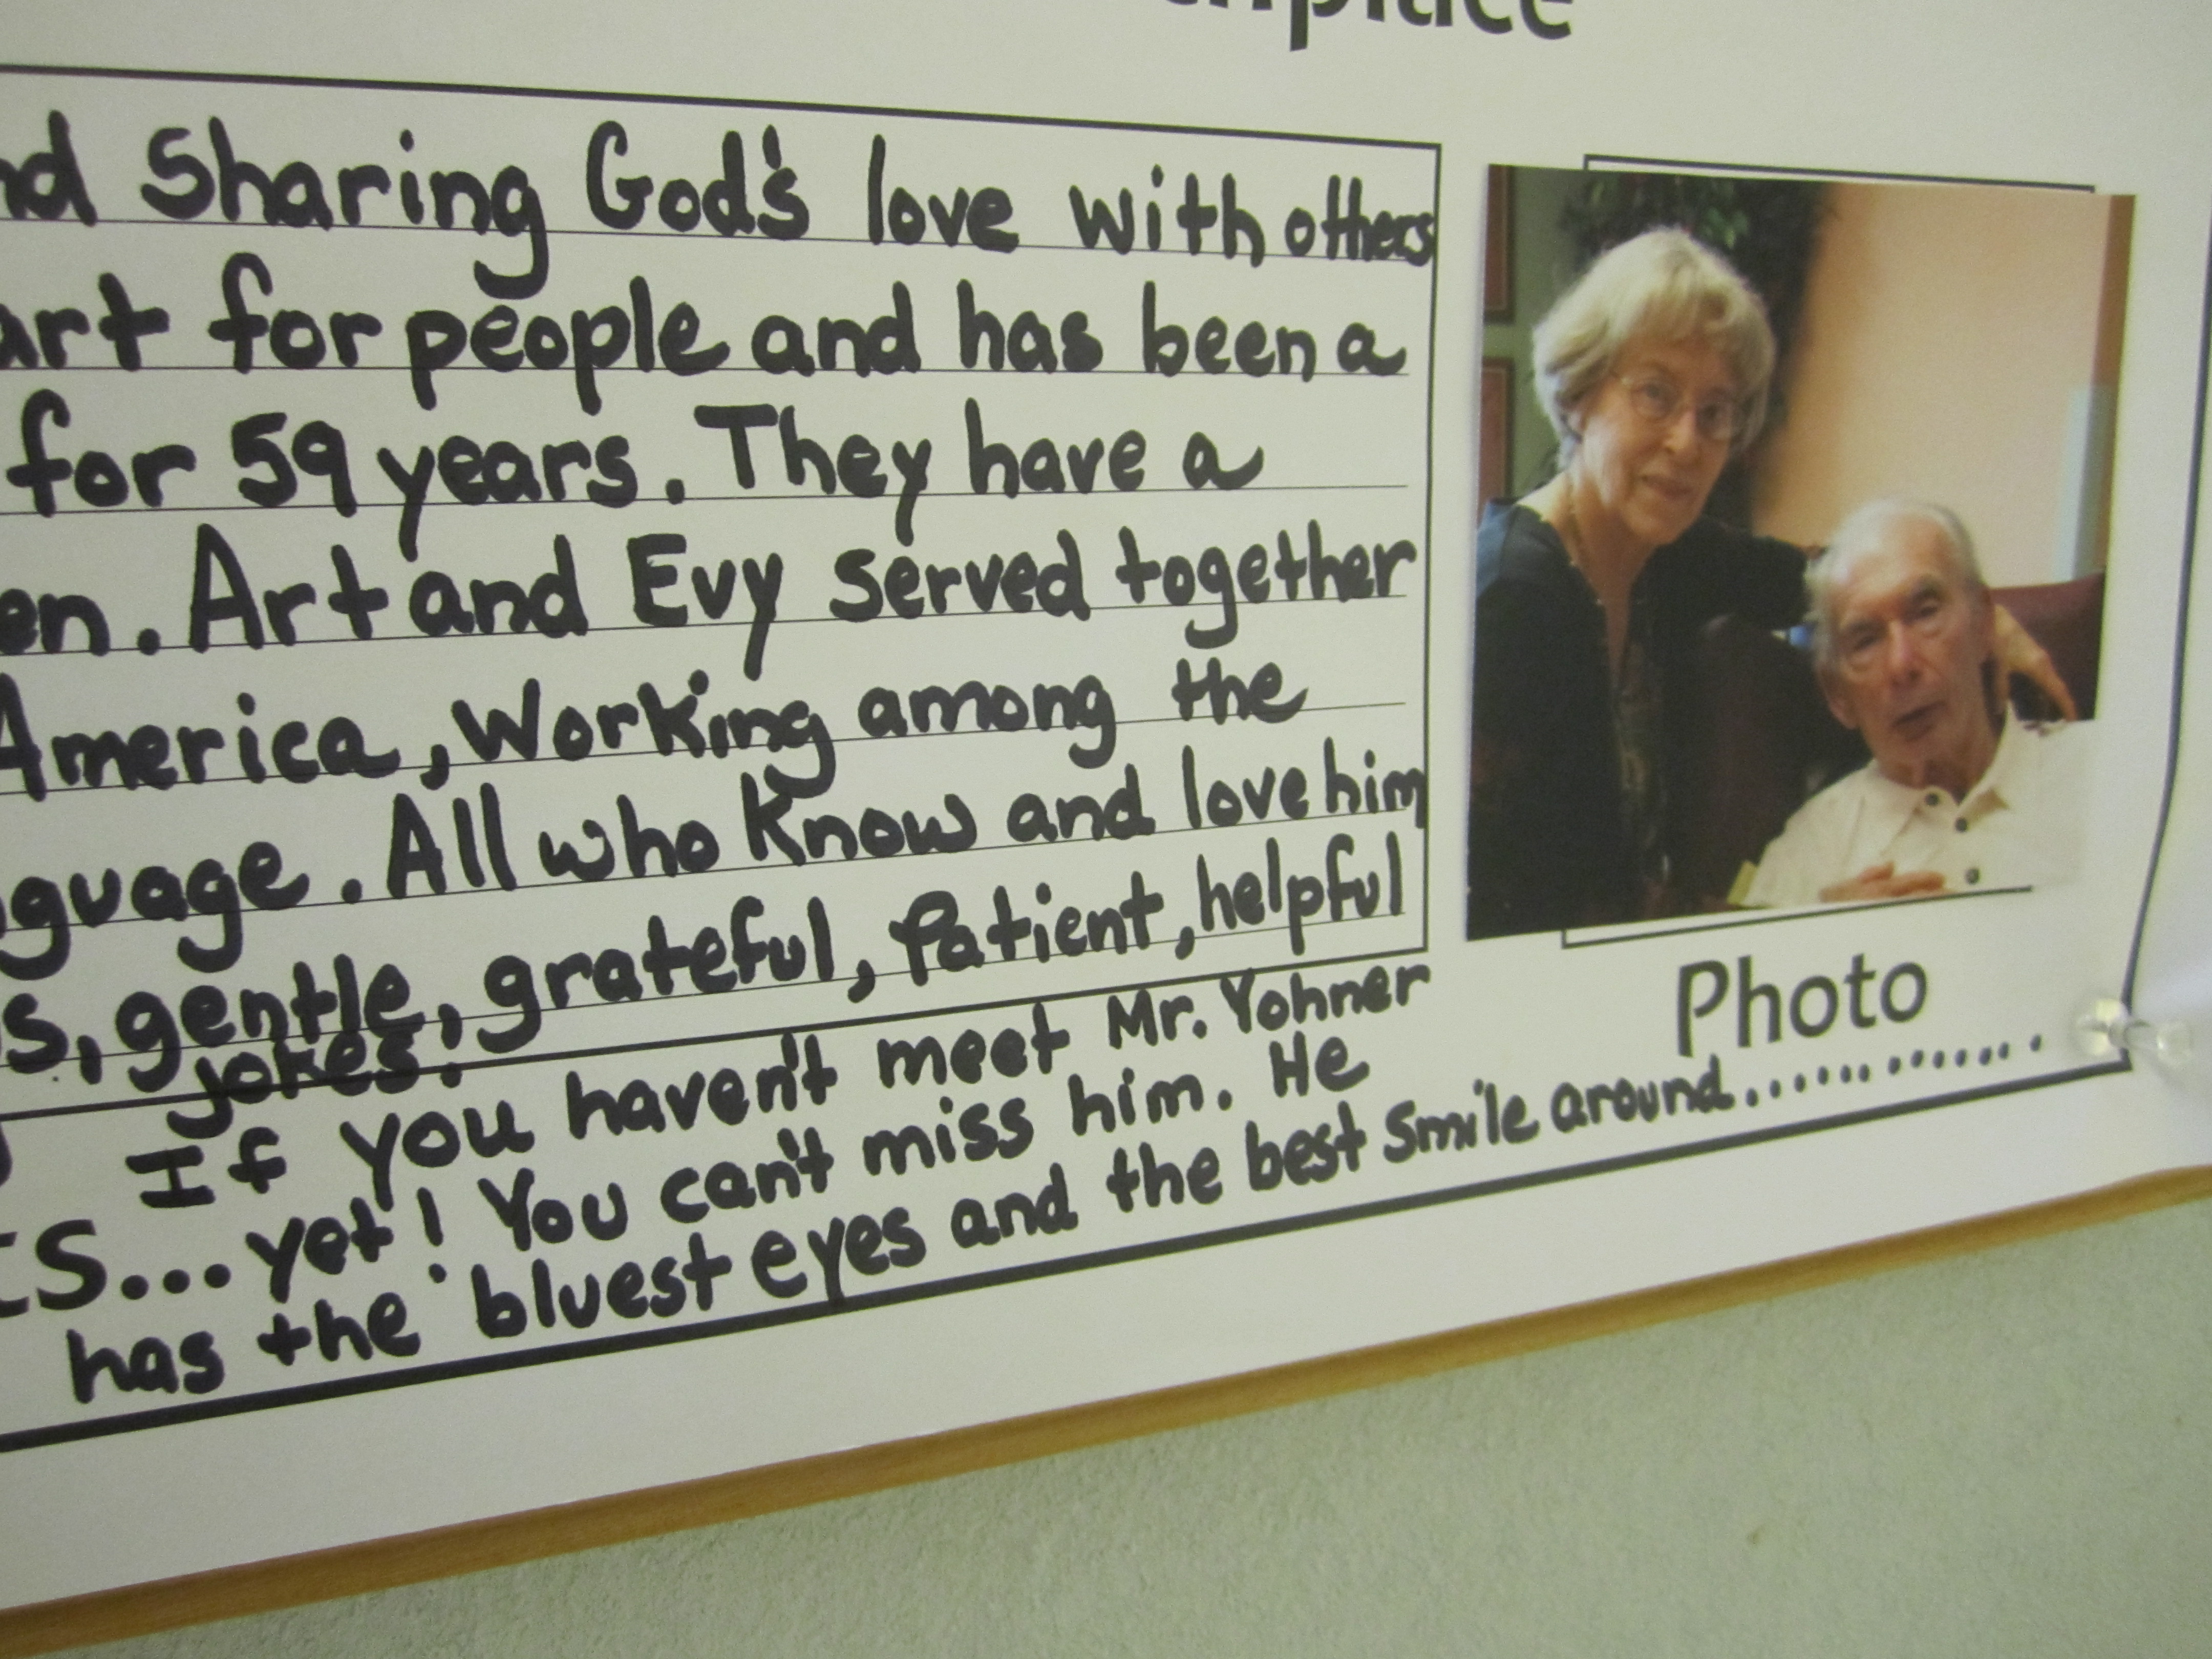 sharing God's love with others
for people and has been a
for 59 years. They have a
. Art and Evy served together
America, Working among the
. All who Know and love him
gentle, grateful, Patient, helpful
jokes.
If you haven't meet Mr. Yohner
...yet! You can't miss him. He
has the bluest eyes and the best smile around..............
Photo